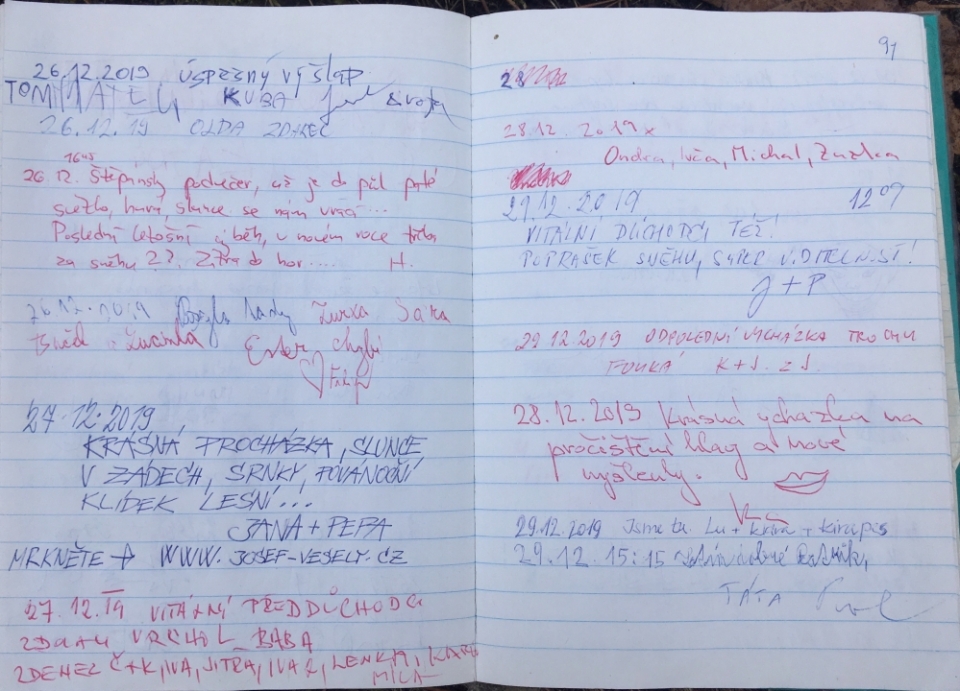 26.12.2019 ÚSPĚŠNÝ VÝŠLAP
TOM MATĚJ KUBA
26.12.19 OLDA ZDAREC
16 45
26.12. Štěpánský podvečer, až je do půl páté
světlo, hurá, slunce se nám vrací...
Poslední letošní výběh, v novém roce třeba
za sněhu ??. Zítra do hor.... H.
26.12.2019 Sára
Ester chybí
Filip
27.12.2019
KRÁSNÁ PROCHÁZKA, SLUNCE
V ZÁDECH, SRNKY, POVÁNOČNÍ
KLÍDEK LESNÍ...
JANA + PEPA
MRKNĚTE → WWW.JOSEF-VESELY.CZ
27.12.19 VITÁLNÍ PŘEDDŮCHODCI
VRCHOL BABA
ZDENEK Č+K, IVA, JITKA, IVA 2, LENKA,
MÍLA
91
28
28.12.2019
Ondra, Iva, Michal, Zuzka
29.12.2019 12 07
VITÁLNÍ DŮCHODCI TÉŽ!
POPRAŠEK SNĚHU, SUPER VIDITELNOST!
J + P
29.12.2019 ODPOLEDNÍ VYCHÁZKA TROCHU
FOUKÁ K+J. z J.
28.12.2019 Krásná vycházka na
pročištění hlavy a nové
myšlenky.
29.12.2019 Jsme tu. Lu +
29.12. 15:15
TÁTA